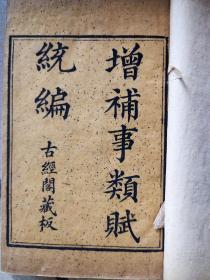 增補事類賦
統編
古經閣藏板